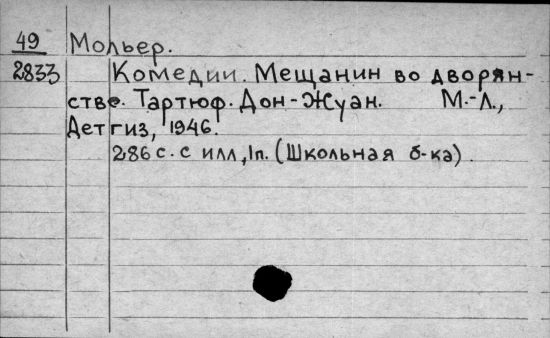 49 Мольер.
2833 Комедии. Мещанин во дворян-
стве. Тартюф. Дон-Жуан. М.-Л.,
Детгиз, 1946.
286 с. с илл., 1п. (Школьная б-ка).